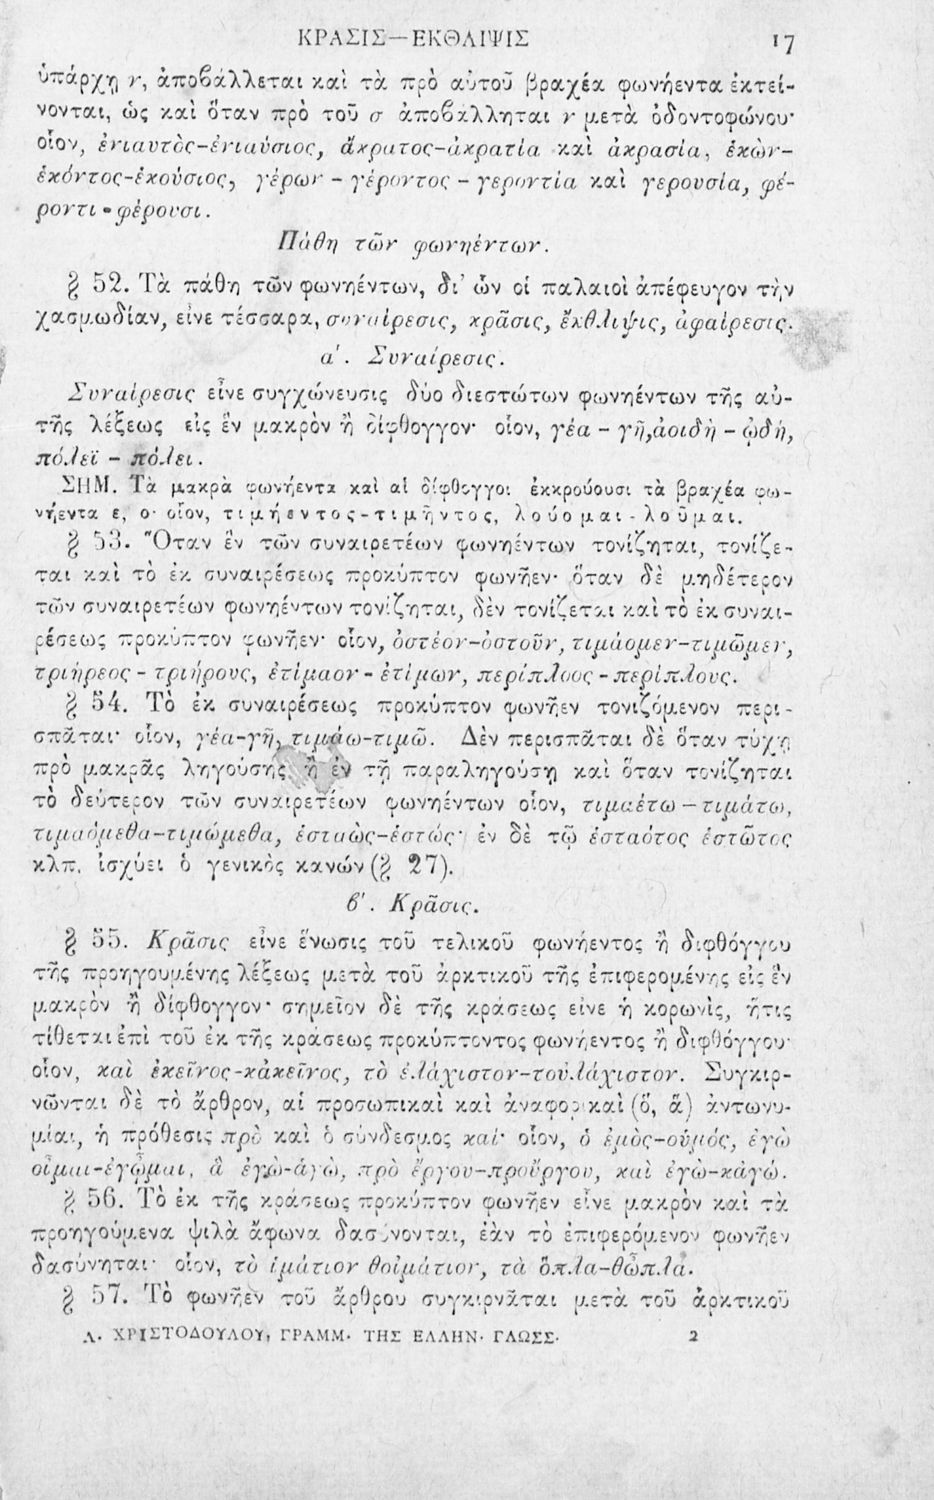 ΚΡΑΣΙΣ—ΕΚΘΛΙΨΙΣ 17
ὑπάρχῃ ν, ἀποβάλλεται καὶ τὰ πρὸ αὐτοῦ βραχέα φωνήεντα ἐκτεί-
νονται, ὡς καὶ ὅταν πρὸ τοῦ σ ἀποβάλληται ν μετὰ ὀδοντοφώνου·
οἷον, ἐνιαυτὸς-ἐνιαύσιος, ἄκρατος-ἀκρατία καὶ ἀκρασία, ἑκὼν-
ἑκόντος-ἑκούσιος, γέρων - γέροντος - γεροντία καὶ γερουσία, φέ-
ροντι - φέρουσι.
Πάθη τῶν φωνηέντων.
§ 52. Τὰ πάθη τῶν φωνηέντων, δι᾿ ὧν οἱ παλαιοὶ ἀπέφευγον τὴν
χασμωδίαν, εἶνε τέσσαρα, συναίρεσις, κρᾶσις, ἔκθλιψις, ἀφαίρεσις.
α΄. Συναίρεσις.
Συναίρεσις εἶνε συγχώνευσις δύο διεστώτων φωνηέντων τῆς αὐ-
τῆς λέξεως εἰς ἓν μακρὸν ἢ δίφθογγον· οἷον, γέα - γῆ, ἀοιδὴ - ᾠδή,
πόλεϊ - πόλει.
ΣΗΜ. Τὰ μακρὰ φωνήεντα καὶ αἱ δίφθογγοι ἐκκρούουσι τὰ βραχέα φω-
νήεντα ε, ο· οἷον, τιμήεντος-τιμῆντος, λούομαι - λοῦμαι.
§ 53. Ὅταν ἓν τῶν συναιρετέων φωνηέντων τονίζηται, τονίζε-
ται καὶ τὸ ἐκ συναιρέσεως προκύπτον φωνῆεν· ὅταν δὲ μηδέτερον
τῶν συναιρετέων φωνηέντων τονίζηται, δὲν τονίζεται καὶ τὸ ἐκ συναι-
ρέσεως προκύπτον φωνῆεν· οἷον, ὀστέον-ὀστοῦν, τιμάομεν-τιμῶμεν,
τριήρεος - τριήρους, ἐτίμαον - ἐτίμων, περίπλοος - περίπλους.
§ 54. Τὸ ἐκ συναιρέσεως προκύπτον φωνῆεν τονιζόμενον περι-
σπᾶται· οἷον, γέα-γῆ, τιμάω-τιμῶ. Δὲν περισπᾶται δὲ ὅταν τύχῃ
πρὸ μακρᾶς ληγούσης ἢ ἐν τῇ παραληγούσῃ καὶ ὅταν τονίζηται
τὸ δεύτερον τῶν συναιρετέων φωνηέντων οἷον, τιμαέτω — τιμάτω,
τιμαόμεθα-τιμώμεθα, ἑσταὼς-ἑστώς· ἐν δὲ τῷ ἑσταότος ἑστῶτος
κλπ. ἰσχύει ὁ γενικὸς κανών (§ 27).
β΄. Κρᾶσις.
§ 55. Κρᾶσις εἶνε ἕνωσις τοῦ τελικοῦ φωνήεντος ἢ διφθόγγου
τῆς προηγουμένης λέξεως μετὰ τοῦ ἀρκτικοῦ τῆς ἐπιφερομένης εἰς ἓν
μακρὸν ἢ δίφθογγον· σημεῖον δὲ τῆς κράσεως εἶνε ἡ κορωνίς, ἥτις
τίθεται ἐπὶ τοῦ ἐκ τῆς κράσεως προκύπτοντος φωνήεντος ἢ διφθόγγου·
οἷον, καὶ ἐκεῖνος-κἀκεῖνος, τὸ ἐλάχιστον-τοὐλάχιστον. Συγκιρ-
νῶνται δὲ τὸ ἄρθρον, αἱ προσωπικαὶ καὶ ἀναφορικαὶ (ὅ, ἅ) ἀντωνυ-
μίαι, ἡ πρόθεσις πρὸ καὶ ὁ σύνδεσμος καί· οἷον, ὁ ἐμὸς-οὑμός, ἐγὼ
οἶμαι-ἐγᾦμαι, ἃ ἐγὼ-ἁγώ, πρὸ ἔργου-προὔργου, καὶ ἐγὼ-κἀγώ.
§ 56. Τὸ ἐκ τῆς κράσεως προκύπτον φωνῆεν εἶνε μακρὸν καὶ τὰ
προηγούμενα ψιλὰ ἄφωνα δασύνονται, ἐὰν τὸ ἐπιφερόμενον φωνῆεν
δασύνηται· οἷον, τὸ ἱμάτιον θοἰμάτιον, τὰ ὅπλα-θὦπλα.
§ 57. Τὸ φωνῆεν τοῦ ἄρθρου συγκιρνᾶται μετὰ τοῦ ἀρκτικοῦ
Λ. ΧΡΙΣΤΟΔΟΥΛΟΥ, ΓΡΑΜΜ. ΤΗΣ ΕΛΛΗΝ. ΓΛΩΣΣ. 2